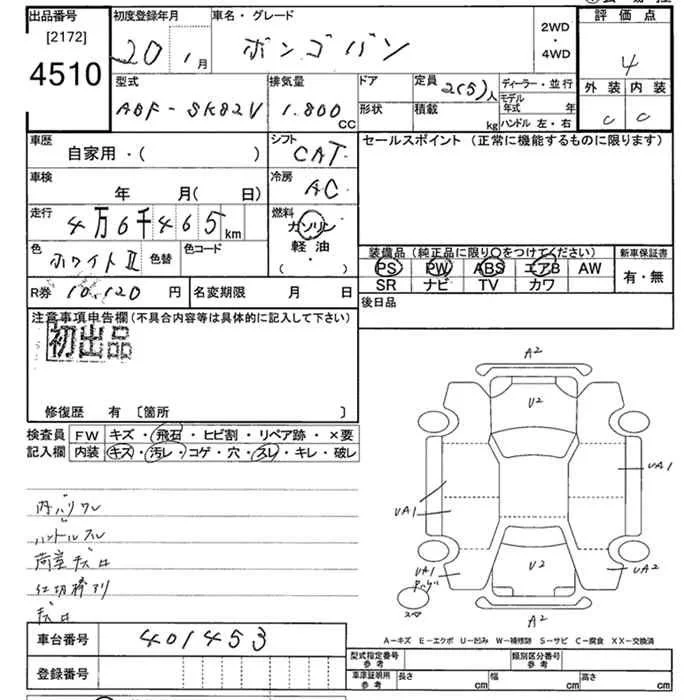 出品番号
[2172]
4510
初度登録年月
20 1月
車名・グレード
ボンゴバン
2WD
・
4WD
評価点
4
外装 内装
C C
型式
ABF-SK82V
排気量
1.800
CC
ドア
形状
定員
2(5)人
積載
kg
ディーラー・並行
モデル年式 年
ハンドル 左・右
車歴
自家用・( )
シフト
CAT
セールスポイント (正常に機能するものに限ります)
車検
年 月(日)
冷房
AC
走行
4万6千465km
燃料
ガソリン
軽・油
( )
色
ホワイトII
色替
色コード
装備品(純正品に限り○をつけてください)
PS PW ABS エアB AW
SR ナビ TV カワ
新車保証書
有・無
R券 10,120 円
名変期限 月 日
後日品
注意事項申告欄(不具合内容等は具体的に記入して下さい)
初出品
修復歴 有 [箇所 ]
検査員
記入欄
FW キズ・飛石・ヒビ割・リペア跡・×要
内装 キズ・汚レ・コゲ・穴・スレ・キレ・破レ
内バリワレ
ハンドルスレ
荷室キズ凹
仕切棒アリ
キズ凹
A2
U2
UA1
UA1
UA1
U2
UA2
スペ
A2
A-キズ E-エクボ U-凹み W-補修跡 S-サビ C-腐食 XX-交換済
車台番号
401453
登録番号
型式指定番号
参考
類別区分番号
参考
車庫証明用
参考
長さ cm
幅 cm
高さ cm